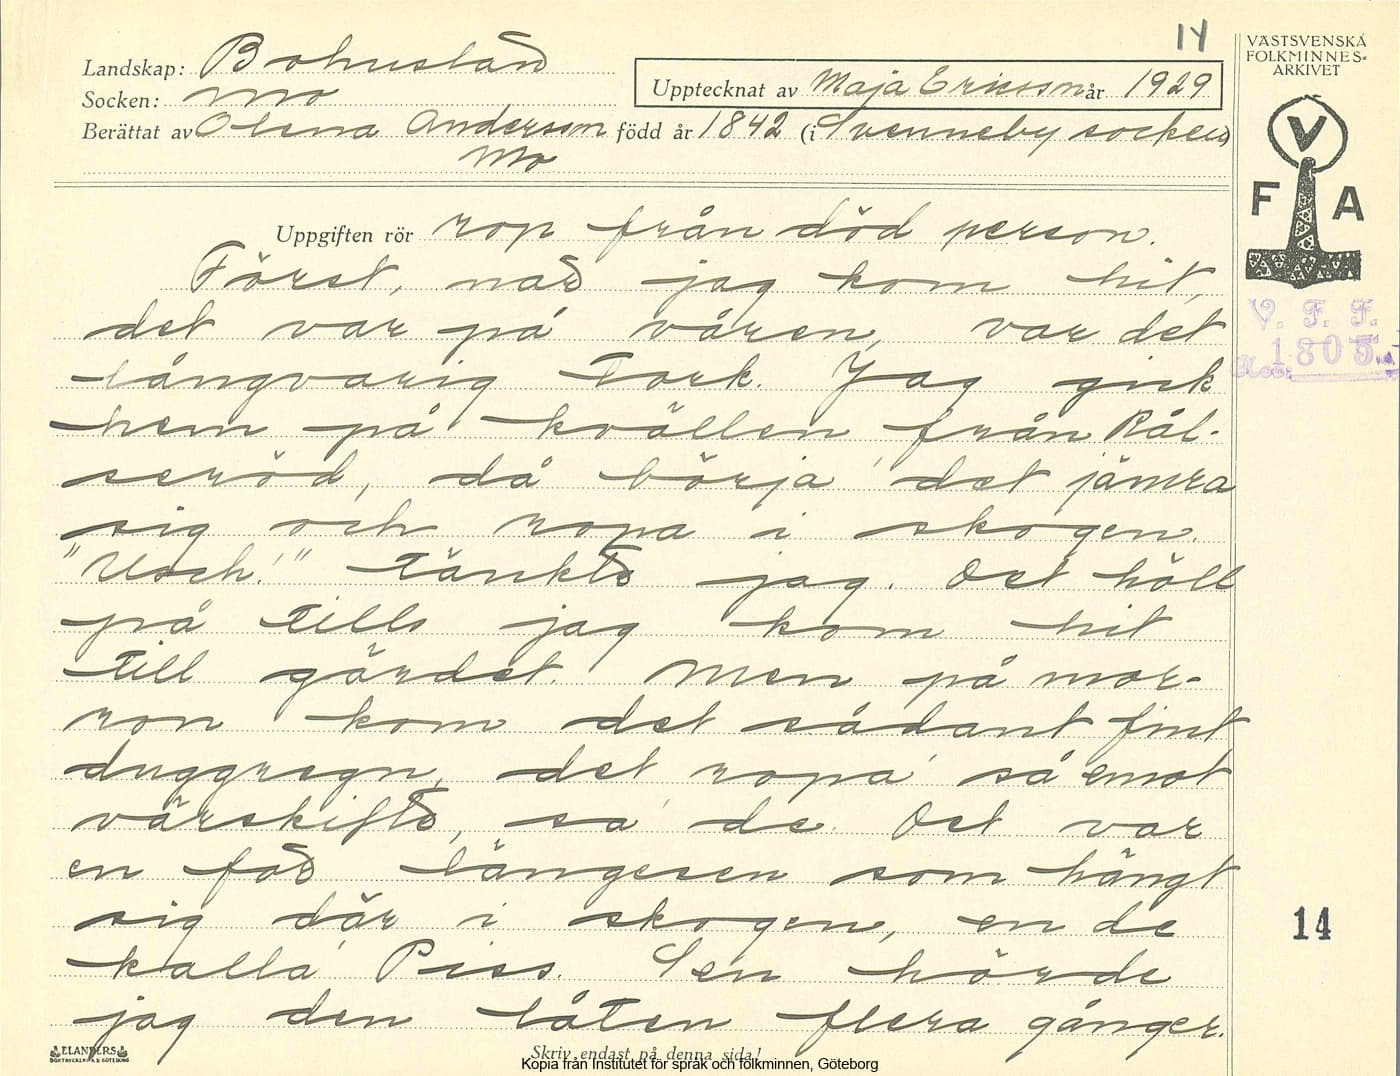 14
VÄSTSVENSKA
FOLKMINNES-
ARKIVET
Landskap: Bohuslän
Socken: Mo
Upptecknat av Maja Ericsson år 1929
Berättat av Olena Anderson född år 1842 (i Svenneby socken)
Mo
V
F A
V. F. F.
Acc. 1805
Uppgiften rör rop från död person.
Först, när jag kom hit,
det var på våren, var det
långvarig tork. Jag gick
hem på kvällen från Rål-
seröd, då börja' det jämra
sig och ropa i skogen.
"Usch!" tänkte jag. Det höll
på tills jag kom hit
till gärdet. Men på mor-
ron kom det sådant fint
duggregn, det ropa' så emot
värskifte, sa' de. Det var
en för längesen som hängt
sig där i skogen, en de
kalla' Piss. Sen hörde
jag den låten flera gånger.
14
ELANDERS
BOKTRYCKERI A.B. GÖTEBORG
Skriv endast på denna sida!
Kopia från Institutet för språk och folkminnen, Göteborg